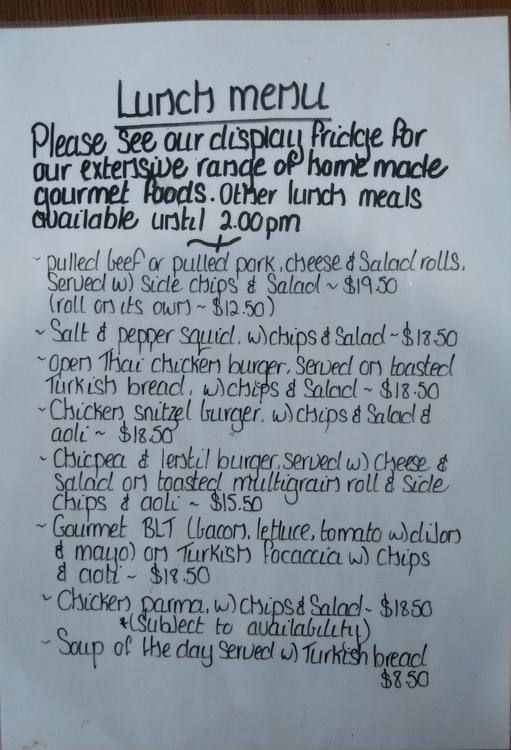 Lunch menu
Please see our display fridge for
our extensive range of home made
gourmet foods. Other lunch meals
available until 2.00pm
~ pulled beef or pulled pork, cheese & Salad rolls,
Served w) Side chips & Salad ~ $19.50
(roll on its own ~ $12.50)
~ Salt & pepper squid, w) chips & Salad ~ $18.50
~ Open Thai chicken burger, Served on toasted
Turkish bread, w) chips & Salad ~ $18.50
~ Chicken snitzel burger, w) chips & Salad &
aoli ~ $18.50
~ Chicpea & lentil burger, Served w) Cheese &
Salad on toasted multigrain roll & Side
Chips & aoli ~ $15.50
~ Gourmet BLT (bacon, lettuce, tomato w) dijon
& mayo) on Turkish focaccia w) chips
& aoli ~ $18.50
~ Chicken parma, w) chips & Salad ~ $18.50
*(Subject to availability)
~ Soup of the day Served w) Turkish bread
$8.50